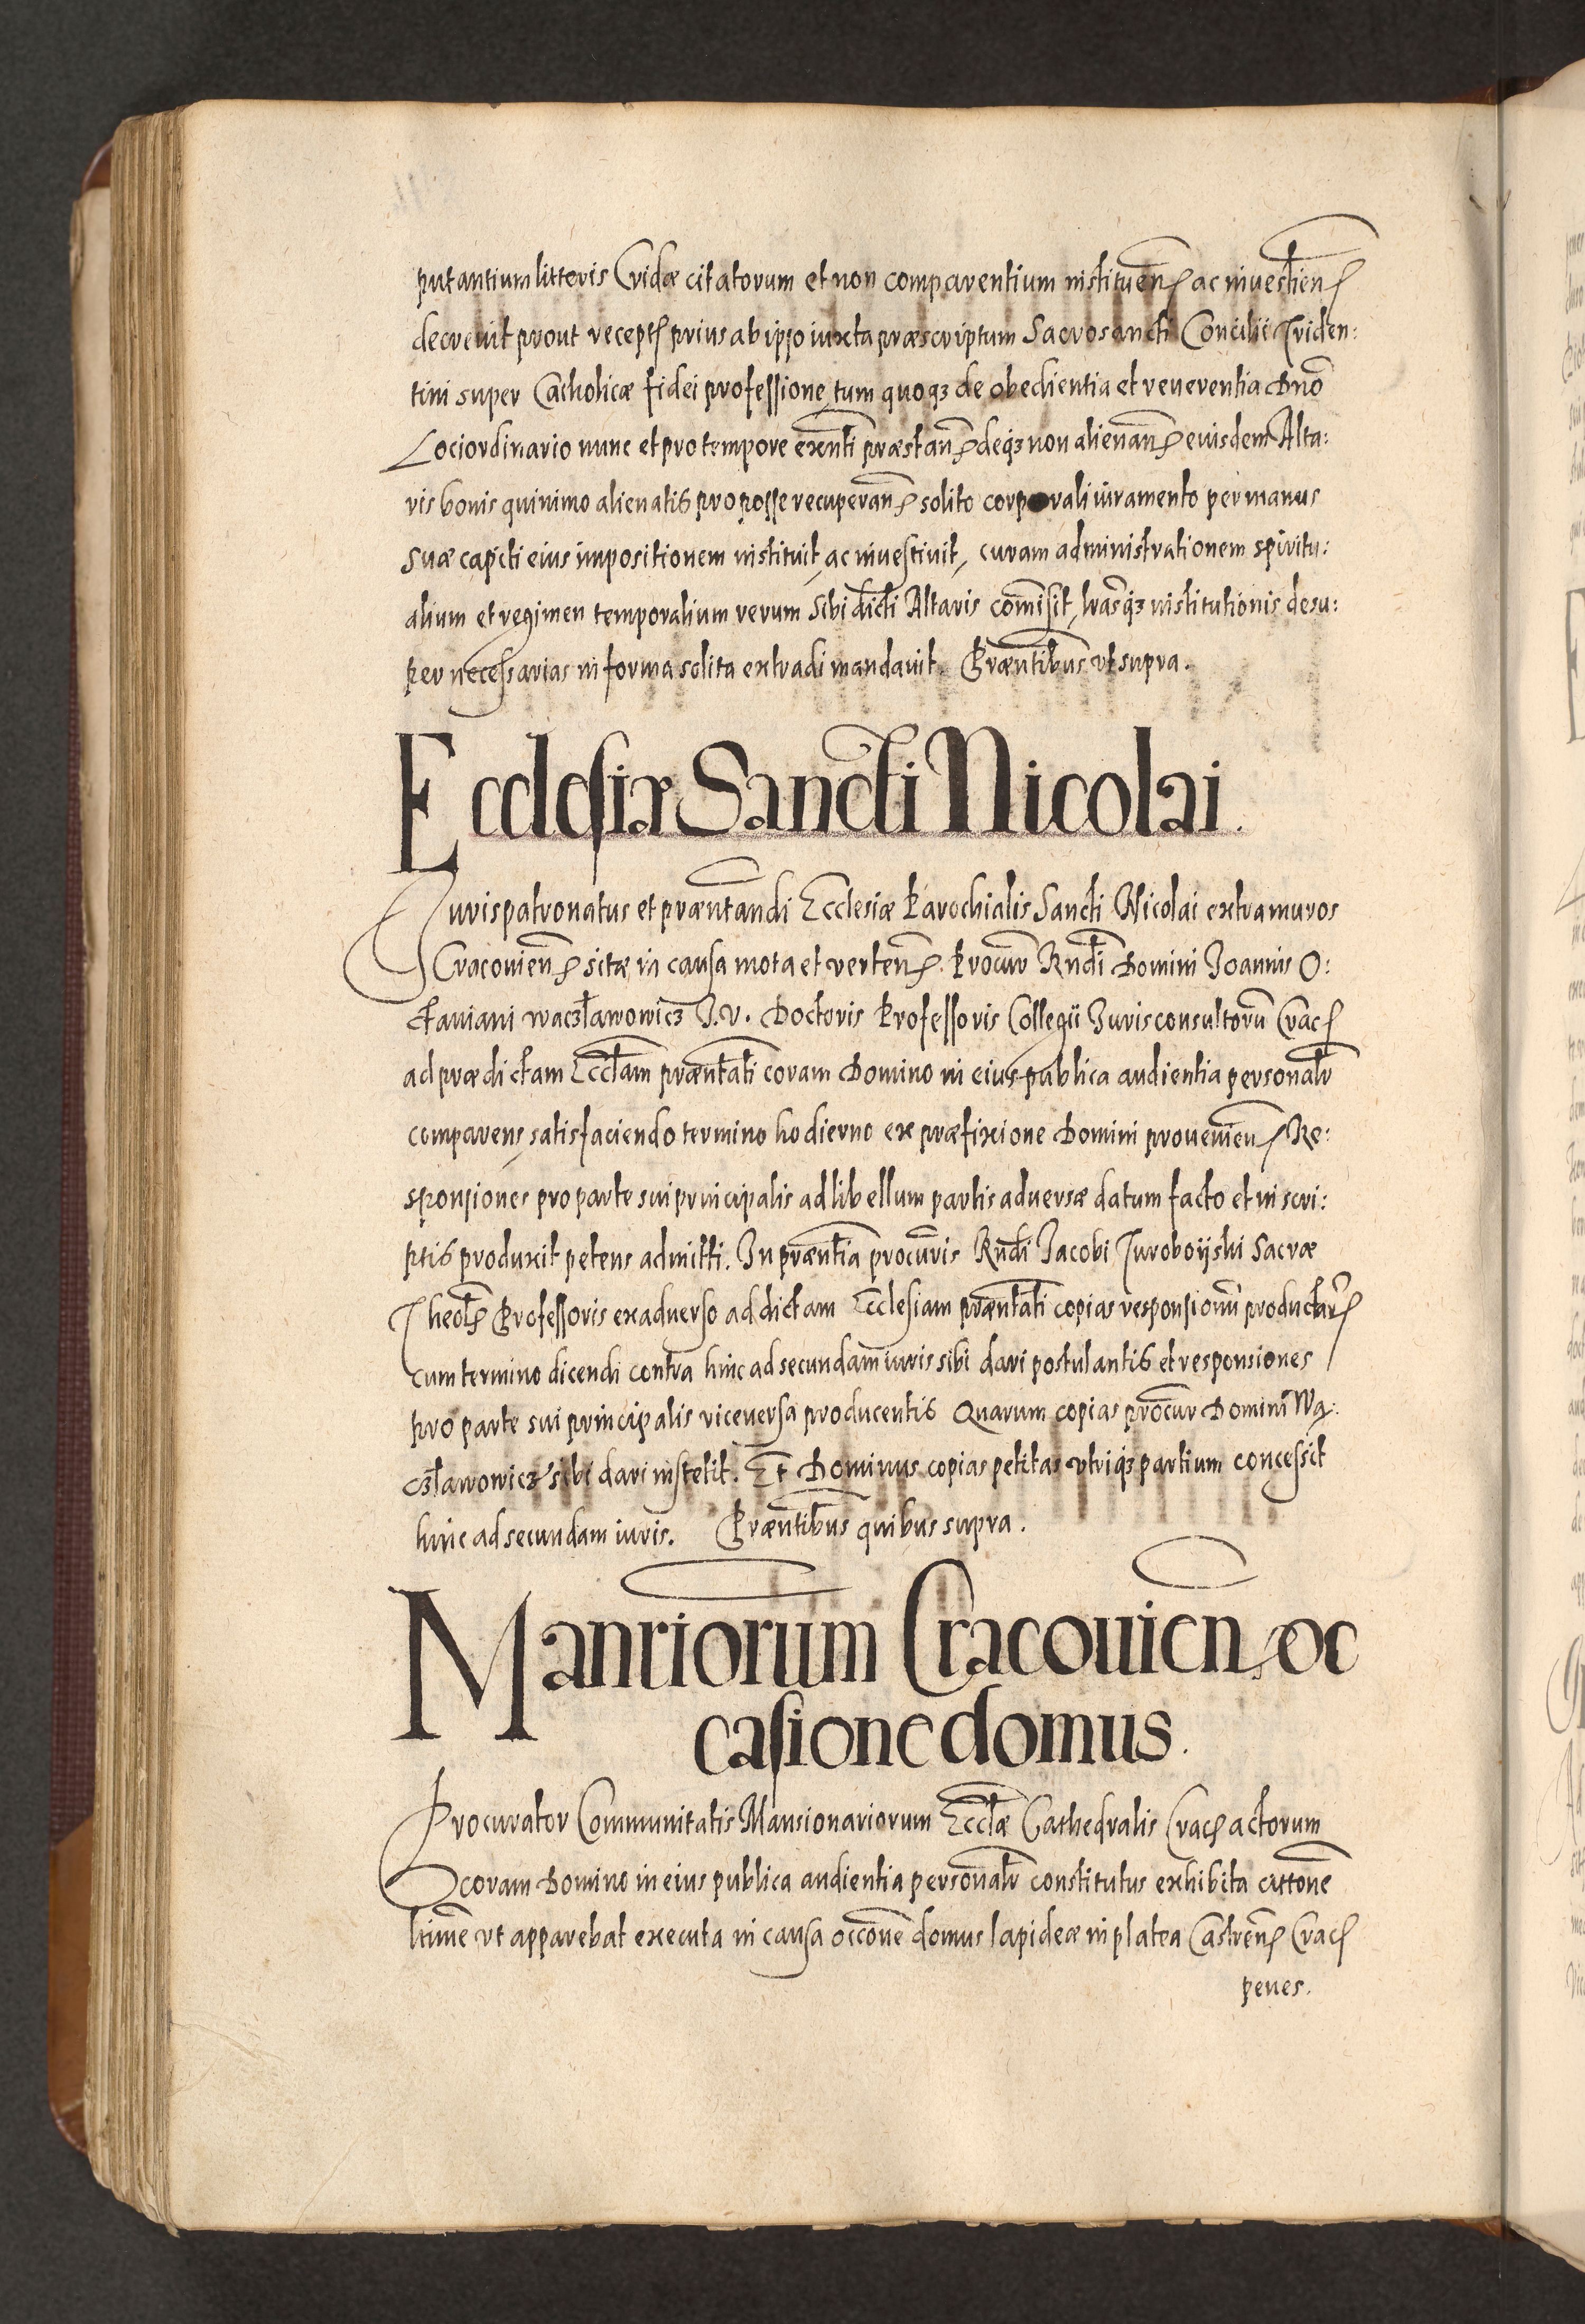 putantium litteris Cridæ citatorum et non comparentium instituen̄ ac inuestien̄
decreuit prout recept prius ab ipso iuxta præscriptum Sacrosancti Concilii Triden:
tini super Catholicæ fidei professione, tum quoqȝ de obedientia et reuerentia Dn̄o
Loci ordinario nunc et pro tempore exn̄ti præstan̄ deqȝ non alienan̄ eiusdem Alta:
ris bonis quinimo alienatis pro posse recuperan̄ solito corporali iuramento per manus
suæ capiti eius impositionem instituit, ac inuestiuit, curam administrationem spiritu:
alium et regimen temporalium rerum sibi dicti Altaris com̄isit, lrāsqȝ institutionis desu:
per necessarias in forma solita extradi mandauit. Præn̄tibus vt supra.
Ecclesiæ Sancti Nicolai.
Iurispatronatus et præn̄tandi Ecclesiæ Parochialis Sancti Nicolai extra muros
Cracouien̄ sitæ in causa mota et verten̄. Procur̄ Rn̄di Domini Joannis O:
ctauiani waczławowicz J.V. Doctoris Professoris Collegii Jurisconsultorū Crac
ad prædictam Eccl̄am præn̄tati coram Domino in eius publica audientia personalr̄
comparens, satisfaciendo termino hodierno ex præfixione Domini prouenien̄ Re:
sponsiones pro parte sui principalis ad libellum partis aduersæ datum facto et in scri:
ptis produxit petens admitti. In præn̄tia procur̄is Rn̄di Jacobi Turoboÿski Sacræ
Theol̄ Professoris ex aduerso ad dictam Ecclesiam præn̄tati copias responsionū productar̄
cum termino dicendi contra hinc ad secundam iuris sibi dari postulantis et responsiones
pro parte sui principalis viceuersa producentis Quarum copias procur̄ Domini Wa:
czławowicz sibi dari instetit. Et Dominus copias petitas vtriqȝ partium concessit
hinc ad secundam iuris. Præn̄tibus quibus supra.
Manriorum Cracouien̄ oc
casione domus.
Procurator Communitatis Mansionariorum Eccl̄æ Cathedralis Crac actorum
coram Domino in eius publica audientia personalr̄ constitutus exhibita citton̄e
ltime vt apparebat executa in causa occōne domus lapideæ in platea Castren̄ Crac
penes.